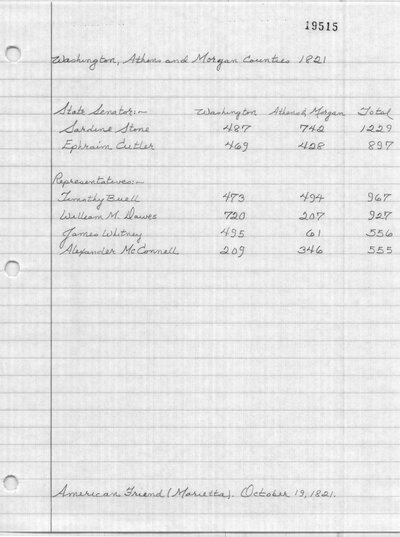 19515
Washington, Athens and Morgan Counties 1821
State Senator:- Washington Athens & Morgan Total
Sardine Stone 487 742 1229
Ephraim Cutler 469 428 897
Representatives:-
Timothy Buell 473 494 967
William M. Dawes 720 207 927
James Whitney 495 61 556
Alexander McConnell 209 346 555
American Friend (Marietta). October 19, 1821.